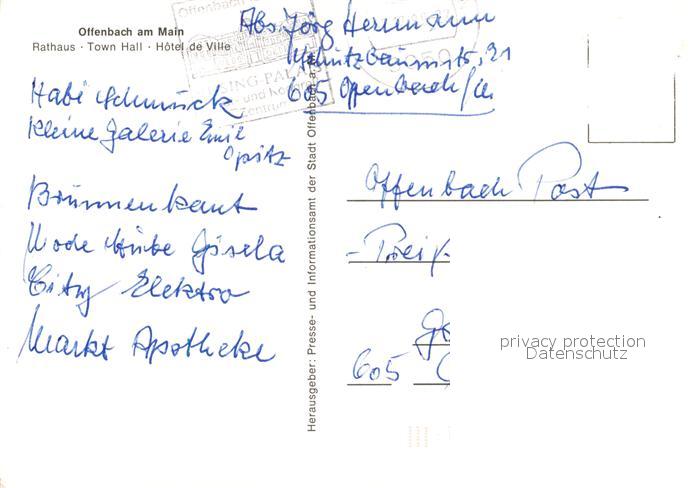 Offenbach am Main
Rathaus · Town Hall · Hôtel de Ville
Abs. Jörg Hermann
605 Offenbach/M
Habi Schmuck
Kleine Galerie Emil
Opitz
Brunnenkant
Mode Stube Gisela
City Elektro
Markt Apotheke
Herausgeber: Presse- und Informationsamt der Stadt Offenbach a.
Offenbach Post
605
privacy protection
Datenschutz